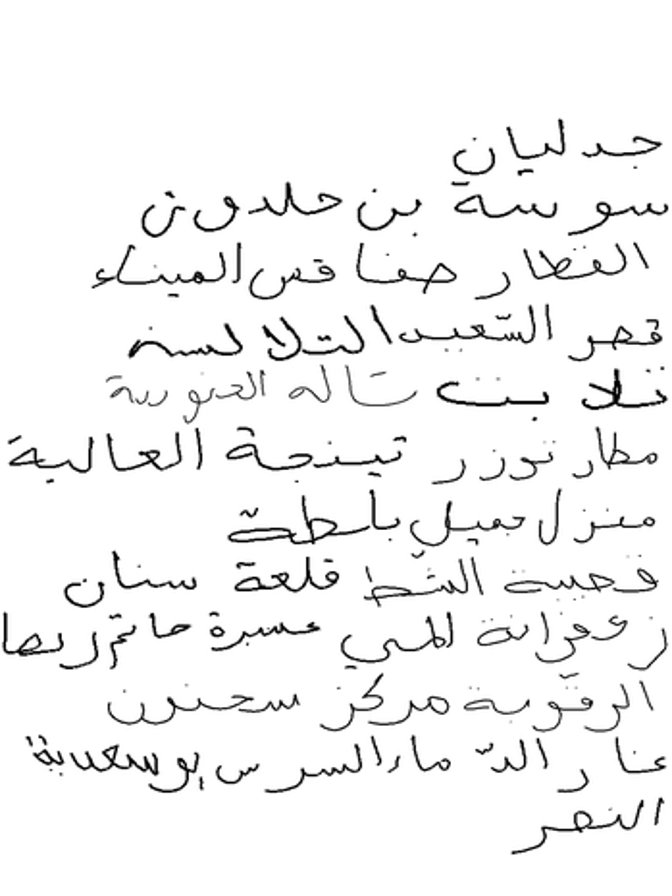 جدليان
سوسة بن خلدون
القطار صفاقس الميناء
قصر السّعيد التلالسة
ثلاثت شاله الجنوبية
مطار توزر تينجة العالية
منزل جميل باطة
قحسة الشّط قلعة سنان
زعفرانة المسي عسيرة حاتم ريصا
الرقوبة مركز سحنون
غار الدّماء السرس بوسعدية
النصر